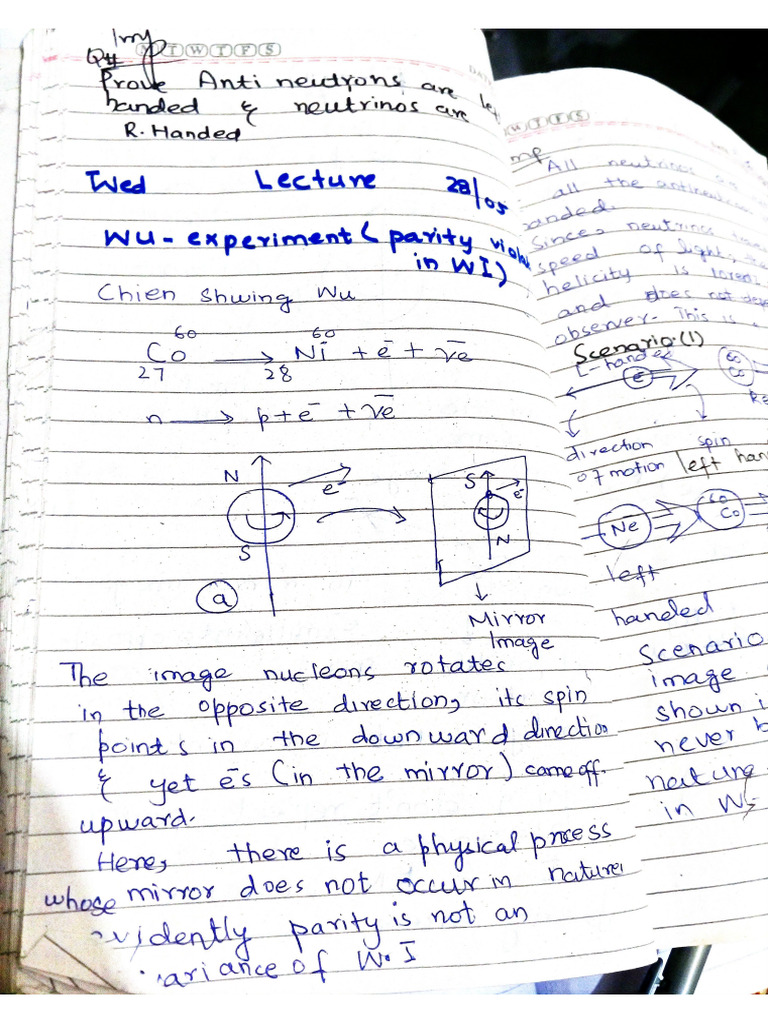 Imp
Q#
M T W T F S
Prove Anti neutrons are
handed & neutrinos are
R. Handed
Wed Lecture 28/05
WU - experiment ( parity
in WI)
Chien Shwing Wu
60 60
Co ⟶ Ni + e⁻ + ν̅e
27 28
n ⟶ p + e⁻ + ν̅e
N
e⁻
S
a
S
e⁻
N
Mirror
Image
The image nucleons rotates
in the opposite direction, its spin
points in the downward direction
& yet e⁻s (in the mirror) come off
upward.
Here, there is a physical process
whose mirror does not occur in nature
evidently parity is not an
variance of W.I
All neutrinos
all the
anded.
Since, neutrinos
speed of light,
helicity is
and does not
observer. This is
Scenario (1)
L-handed
e⁻
60
Co
direction spin
of motion left
Ne
60
Co
left
handed
Scenario
image
shown i
never b
nature
in W